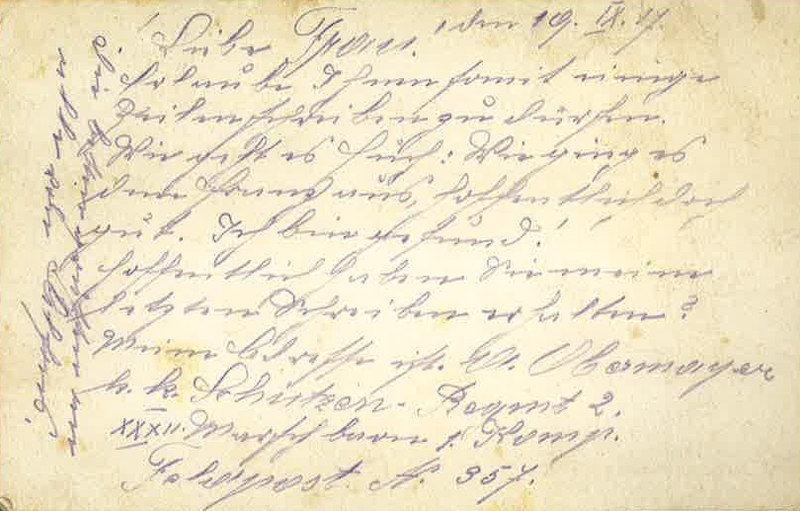 den 19. IX. 17.
Liebe Frau!
Erlaube Ihnen somit einige
Zeilen schreiben zu dürfen.
Wie geht es Euch? Wie ging es
dem Franz aus, hoffentlich doch
gut. Ich bin gesund!
Hoffentlich haben Sie meine
letzten Schreiben erhalten?
Meine Adresse ist. W. Obermayer
k. k. Schützen-Regmt 2.
XXXII. Marschbaon 1. Komp.
Feldpost N. 357.